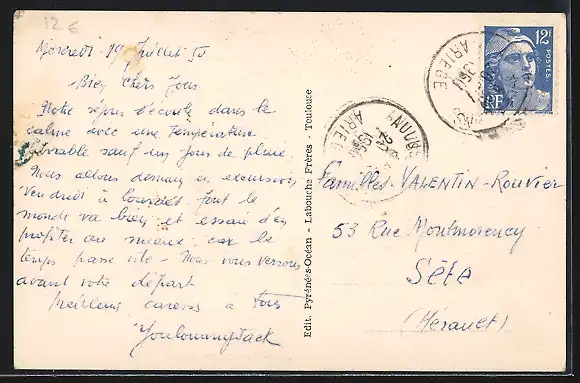 12 €
Mercredi 19 Juillet 50
Bien chers Tous
Notre séjour s'écoule dans le
calme avec une température
favorable sauf un jour de pluie.
Nous allons demain en excursion
Vendredi à Lourdes. Tout le
monde va bien et essaie d'en
profiter au mieux car le
temps passe vite - Nous vous verrons
avant votre départ
Meilleures caresses à Tous
Edit. Pyrénées-Océan - Labouche Frères - Toulouse
12F
POSTES
RF
ARIEGE
ARIEGE
Familles VALENTIN-ROUVIER
53 Rue Montmorency
Sète
(Hérault)